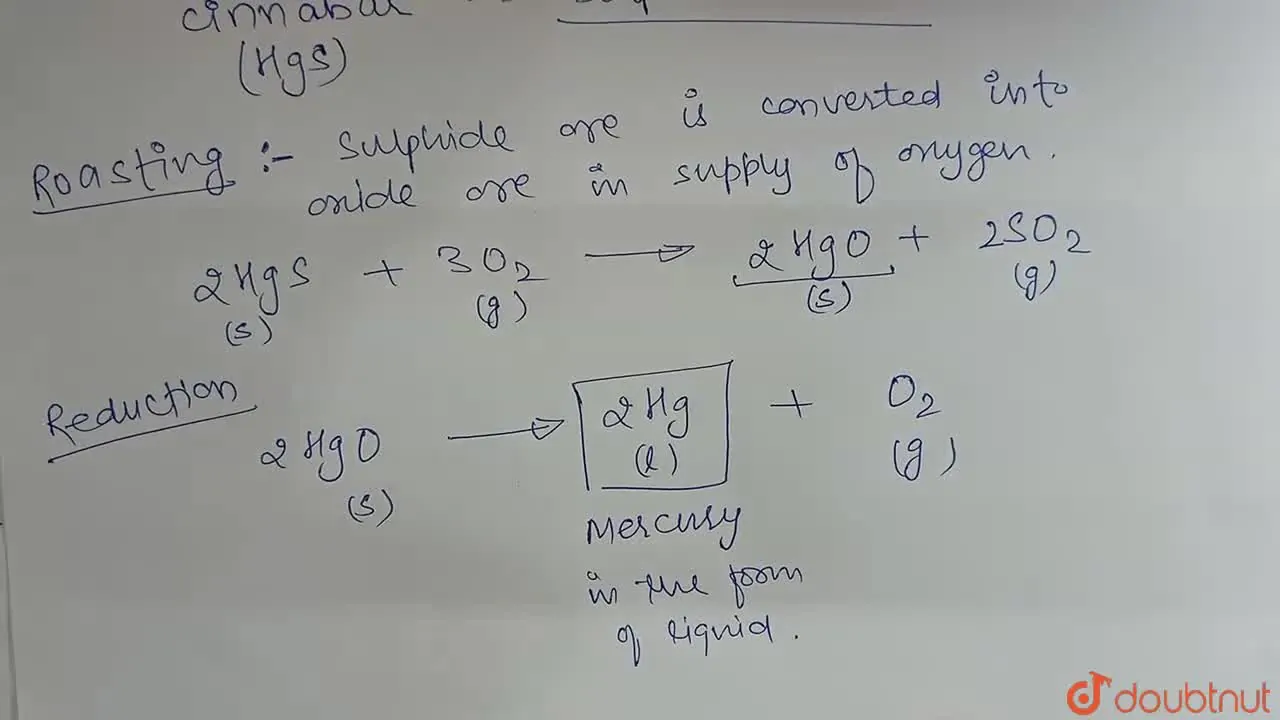 cinnabar
(HgS)
Roasting :- Sulphide ore is converted into
oxide ore in supply of oxygen.
2HgS + 3O2 → 2HgO + 2SO2
(s) (g) (s) (g)
Reduction
2HgO → 2Hg + O2
(s) (l) (g)
Mercury
in the form
of liquid.
doubtnut